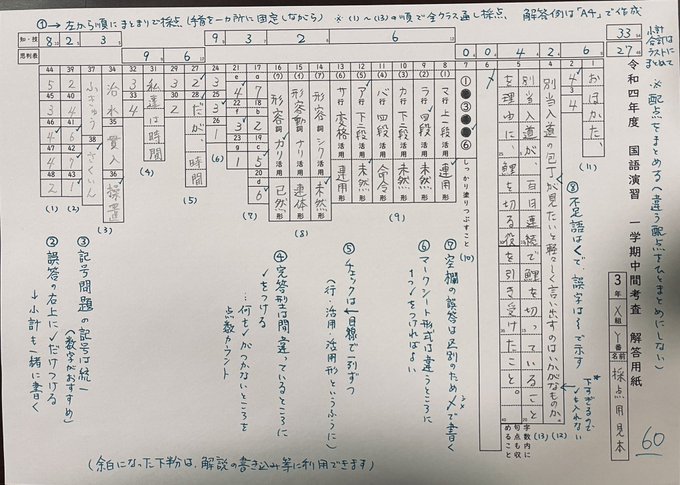 ①→ 左から順にまとまりで採点（手首を一ヵ所に固定しながら） ※(1)～(13)の順で全クラス通し採点、解答例は「A4」で作成
小計
合計は
ラストに
まとめて
※配点をまとめる（違う配点をひとまとめにしない）
令和四年度 国語演習 一学期中間考査 解答用紙
3年 X組 Y番 名前 採点用見本
60
知・技
8 2 3
9 3 2 2
33 54
思判表
9 6
7 0 0 4 2 6
27 46
おほかた、
4
3
4
(11)
別当入道の包丁が見たいと軽々しく言い出すのはいかがなものか
別当入道が、百日連続で鯉を切っていること
を理由に、鯉を切る役を引き受けたこと。
字数内に
句点も収
めること
(13)
(12)
しっかり塗りつぶすこと
(10)
マ行 上一段活用 連用形
ラ行 四段活用 未然形
カ行 下二段活用 未然形
バ行 四段活用 命令形
ア行 下二段活用 未然形
サ行 変格活用 連用形
(9)
形容詞 シク活用 未然形
形容動詞 ナリ活用 連体形
形容詞 カリ活用 已然形
(8)
(7)
(6)
だが、時間
(5)
私達は時間
(4)
治水
貫入
操置
ふきゅう
さくいん
(3)
(2)
(1)
⑧不足語は＜で、誤字は〜で示す
*下すぎるので✓も入れない
⑦空欄の誤答は区別のため〆で書く
⑥マークシート形式は違うところに
1つ✓をつければよい
⑤チェックは一目線で一列ずつ
（行・活用・活用形というふうに）
④完答型は間違っているところに
✓をつける
…何も✓がつかないところを
点数カウント
③記号問題の記号は統一
（数字がおすすめ）
②誤答の右上に✓だけつける
→小計も一緒に書く
（余白になった下部分は、解説の書き込み等に利用できます）